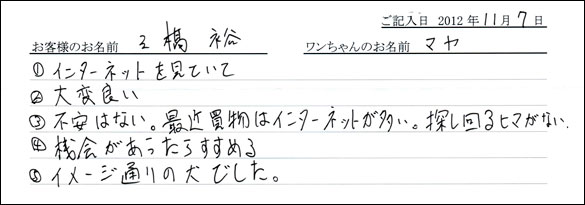 ご記入日 2012年11月7日
お客様のお名前 三橋 裕 ワンちゃんのお名前 マヤ
① インターネットを見ていて
② 大変良い
③ 不安はない。最近買物はインターネットが多い。探し回るヒマがない.
④ 機会があったらすすめる
⑤ イメージ通りの犬でした。